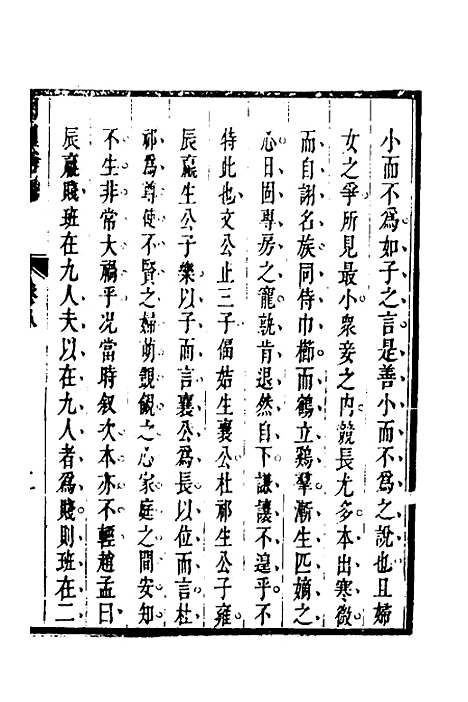 小而不爲如子之言是善小而不爲之說也且婦
女之爭所見最小衆妾之內競長尤多本出寒微
而自詡名族同侍巾櫛而鶴立鷄羣漸生匹嫡之
心日固專房之寵孰肯退然自下謙讓不遑乎不
特此也文公止三子偪姞生襄公杜祁生公子雍
辰嬴生公子樂以子而言襄公爲長以位而言杜
祁爲尊使不賢之婦萌覬覦之心家庭之間安知
不生非常大禍乎况當時叙次本亦不輕趙孟曰
辰嬴賤班在九人夫以在九人者爲賤則班在二